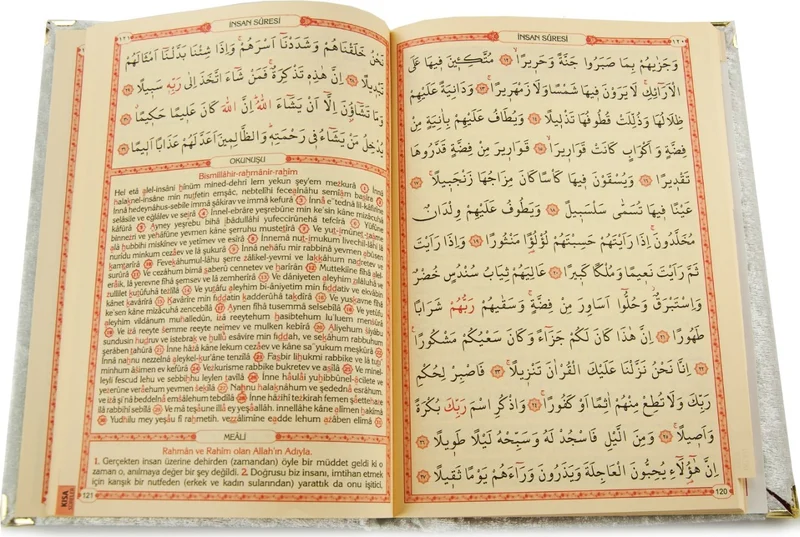 İNSAN SÛRESİ
١٢٠
وَجَزٰيهُمْ بِمَا صَبَرُوا جَنَّةً وَحَرِيرًا ﴿١٢﴾ مُتَّكِـِٔينَ فِيهَا عَلَى
الْاَرَٓائِكِ لَا يَرَوْنَ فِيهَا شَمْسًا وَلَا زَمْهَرِيرًا ﴿١٣﴾ وَدَانِيَةً عَلَيْهِمْ
ظِلَالُهَا وَذُلِّلَتْ قُطُوفُهَا تَذْلِيلًا ﴿١٤﴾ وَيُطَافُ عَلَيْهِمْ بِاٰنِيَةٍ مِنْ
فِضَّةٍ وَاَكْوَابٍ كَانَتْ قَوَارِيرَا ﴿١٥﴾ قَوَارِيرَ مِنْ فِضَّةٍ قَدَّرُوهَا
تَقْدِيرًا ﴿١٦﴾ وَيُسْقَوْنَ فِيهَا كَأْسًا كَانَ مِزَاجُهَا زَنْجَبِيلًا ﴿١٧﴾
عَيْنًا فِيهَا تُسَمّٰى سَلْسَبِيلًا ﴿١٨﴾ وَيَطُوفُ عَلَيْهِمْ وِلْدَانٌ
مُخَلَّدُونَ اِذَا رَاَيْتَهُمْ حَسِبْتَهُمْ لُؤْلُؤًا مَنْثُورًا ﴿١٩﴾ وَاِذَا رَاَيْتَ
ثَمَّ رَاَيْتَ نَعِيمًا وَمُلْكًا كَبِيرًا ﴿٢٠﴾ عَالِيَهُمْ ثِيَابُ سُنْدُسٍ خُضْرٌ
وَاِسْتَبْرَقٌ وَحُلُّٓوا اَسَاوِرَ مِنْ فِضَّةٍ وَسَقٰيهُمْ رَبُّهُمْ شَرَابًا
طَهُورًا ﴿٢١﴾ اِنَّ هٰذَا كَانَ لَكُمْ جَزَٓاءً وَكَانَ سَعْيُكُمْ مَشْكُورًا ﴿٢٢﴾
اِنَّا نَحْنُ نَزَّلْنَا عَلَيْكَ الْقُرْاٰنَ تَنْزِيلًا ﴿٢٣﴾ فَاصْبِرْ لِحُكْمِ
رَبِّكَ وَلَا تُطِعْ مِنْهُمْ اٰثِمًا اَوْ كَفُورًا ﴿٢٤﴾ وَاذْكُرِ اسْمَ رَبِّكَ بُكْرَةً
وَاَصِيلًا ﴿٢٥﴾ وَمِنَ الَّيْلِ فَاسْجُدْ لَهُ وَسَبِّحْهُ لَيْلًا طَوِيلًا ﴿٢٦﴾
اِنَّ هٰٓؤُلَٓاءِ يُحِبُّونَ الْعَاجِلَةَ وَيَذَرُونَ وَرَٓاءَهُمْ يَوْمًا ثَقِيلًا ﴿٢٧﴾
120
١٢١
İNSAN SÛRESİ
نَحْنُ خَلَقْنَاهُمْ وَشَدَدْنَٓا اَسْرَهُمْ وَاِذَا شِئْنَا بَدَّلْنَٓا اَمْثَالَهُمْ
تَبْدِيلًا ﴿٢٨﴾ اِنَّ هٰذِهِ تَذْكِرَةٌ فَمَنْ شَٓاءَ اتَّخَذَ اِلٰى رَبِّهِ سَبِيلًا ﴿٢٩﴾
وَمَا تَشَٓاؤُ۫نَ اِلَّٓا اَنْ يَشَٓاءَ اللّٰهُ اِنَّ اللّٰهَ كَانَ عَلِيمًا حَكِيمًا ﴿٣٠﴾
يُدْخِلُ مَنْ يَشَٓاءُ فِى رَحْمَتِهِ وَالظَّالِمِينَ اَعَدَّ لَهُمْ عَذَابًا اَلِيمًا ﴿٣١﴾
OKUNUŞU
Bismillâhir-rahmânir-rahîm
Hel etâ alel-insâni hînum mined-dehri lem yekun şey'em mezkurâ 1 İnnâ
halaknel-insâne min nutfetin emşâc, nebtelîhi fecealnâhu semîam basîrâ 2
İnnâ hedeynâhus-sebîle immâ şâkirav ve immâ kefûrâ 3 İnnâ e'tednâ lil-kâfirîne
selâsile ve eğlâlev ve seîrâ 4 İnnel-ebrâre yeşrebûne min ke'sin kâne mizâcuhâ
kâfûrâ 5 Ayney yeşrebu bihâ ibâdullâhi yufeccirûnehâ tefcîrâ 6 Yûfûne
binnezri ve yehâfûne yevmen kâne şerruhu mustetîrâ 7 Ve yut'imûnet-taâme
alâ hubbihi miskînev ve yetîmev ve esîrâ 8 İnnemâ nut'imukum livechil-lâhi lâ
nurîdu minkum cezâev ve lâ şukûrâ 9 İnnâ nehâfu mir rabbinâ yevmen abûsen
kamtarîrâ 10 Fevekâhumul-lâhu şerre zâlikel-yevmi ve lakkâhum nadretev ve
surûrâ 11 Ve cezâhum bimâ saberû cennetev ve harîran 12 Muttekiîne fîhâ alel-
erâik, lâ yerevne fîhâ şemsev ve lâ zemherîrâ 13 Ve dâniyeten aleyhim zilâluhâ ve
zullilet kutûfuhâ tezlîlâ 14 Ve yutâfu aleyhim bi-âniyetim min fiddativ ve ekvâbin
kânet kavârîrâ 15 Kavârîre min fiddatin kadderûhâ takdîrâ 16 Ve yuskavne fîhâ
ke'sen kâne mizâcuhâ zencebîlâ 17 Aynen fîhâ tusemmâ selsebîlâ 18 Ve yetûfu
aleyhim vildânum muhalledûn, izâ reeytehum hasibtehum lu'luem mensûrâ
19 Ve izâ reeyte semme reeyte neîmev ve mulken kebîrâ 20 Aliyehum siyâbu
sundusin hudruv ve istebrak ve hullû esâvire min fiddah, ve sekâhum rabbuhum
şerâben tahûrâ 21 İnne hâzâ kâne lekum cezâev ve kâne sa'yukum meşkûrâ 22
İnnâ nahnu nezzelnâ aleykel-kur'âne tenzîlâ 23 Fasbir lihukmi rabbike ve lâ tuti'
minhum âsimen ev kefûrâ 24 Vezkurisme rabbike bukretev ve asîlâ 25 Ve minel-
leyli fescud lehu ve sebbihhu leylen tavîlâ 26 İnne hâulâi yuhibbûnel-âcilete ve
yezerûne verâehum yevmen sekîlâ 27 Nahnu halaknâhum ve şedednâ esrâhum
ve izâ şi'nâ beddelnâ emsâlehum tebdîlâ 28 İnne hâzihî tezkirah femen şâettehaze
ilâ rabbihî sebîlâ 29 Ve mâ teşâune illâ ey yeşâallâh, innellâhe kâne alîmen hakîmâ
30 Yudhilu mey yeşâu fî rahmetih, vezzâlimîne eadde lehum azâben elîmâ 31
MEALİ
Rahmân ve Rahîm olan Allah'ın Adıyla.
1. Gerçekten insan üzerine dehirden (zamandan) öyle bir müddet geldi ki o
zaman o, anılmaya değer bir şey değildi. 2. Doğrusu biz insanı, imtihan etmek
için karışık bir nutfeden (erkek ve kadın sularından) yarattık da onu işitici,
121
KISA